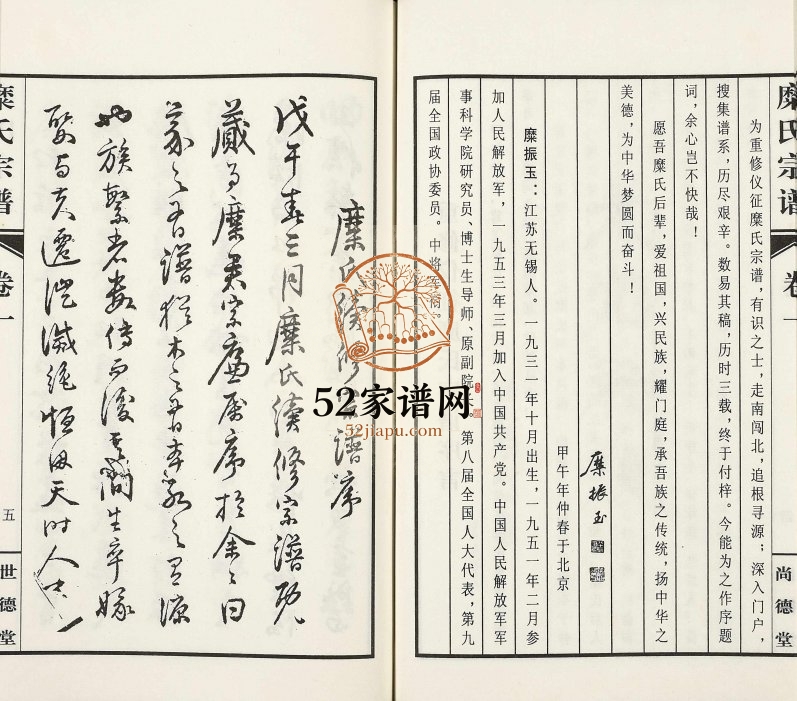 糜氏宗谱
卷一
尚德堂
为重修仪征糜氏宗谱，有识之士，走南闯北，追根寻源；深入门户，
搜集谱系，历尽艰辛。数易其稿，历时三载，终于付梓。今能为之作序题
词，余心岂不快哉！
愿吾糜氏后辈，爱祖国，兴民族，耀门庭，承吾族之传统，扬中华之
美德，为中华梦圆而奋斗！
糜振玉
甲午年仲春于北京
糜振玉：江苏无锡人。一九三一年十月出生，一九五一年二月参
加人民解放军，一九五三年三月加入中国共产党。中国人民解放军军
事科学院研究员、博士生导师、原副院长。第八届全国人大代表，第九
届全国政协委员。中将军衔。
糜氏续修宗谱序
戊午春三月糜氏续修宗谱既
藏
糜君宗
属序于余
曰
之有谱犹木之有本水之有源
族繁者数传而后其间生卒嫁
娶与夫迁
灭绝恒因天时人
糜氏宗谱
卷一
五
世德堂
52家谱网
52jiapu.com